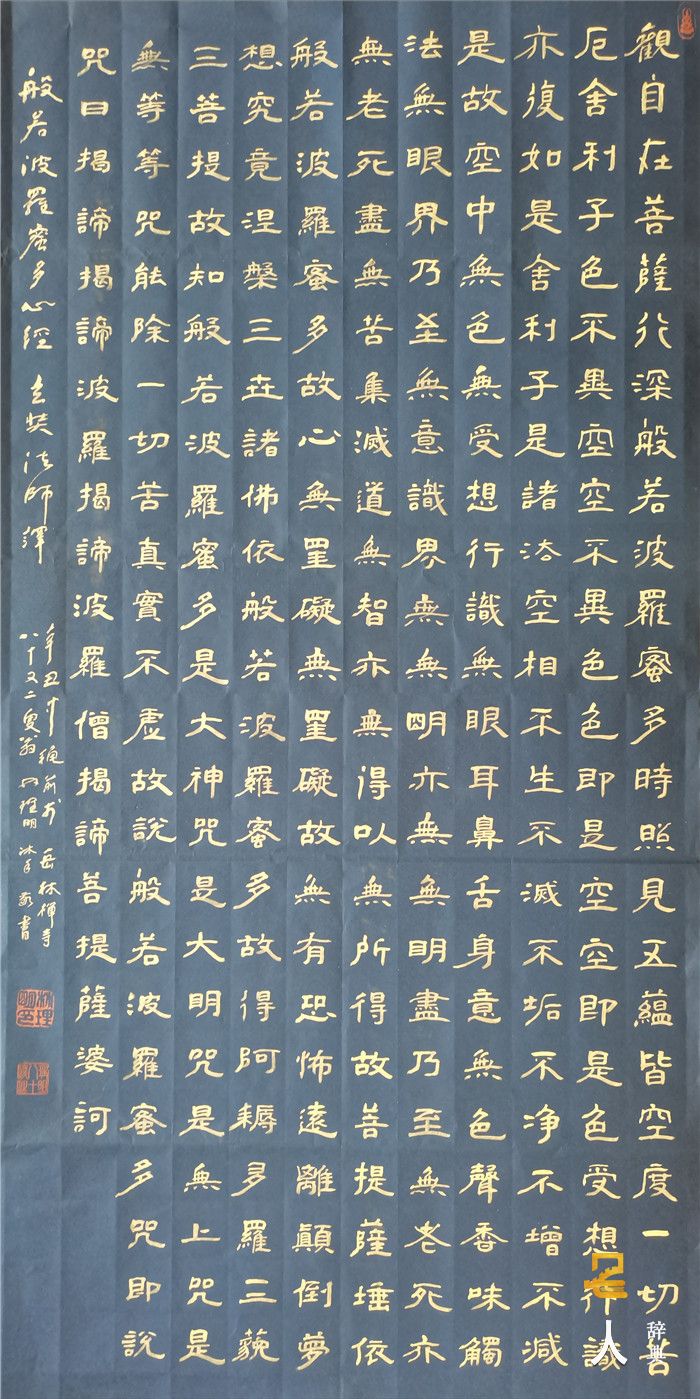 觀自在菩薩行深般若波羅蜜多時照見五蘊皆空度一切苦
厄舍利子色不異空空不異色色即是空空即是色受想行識
亦復如是舍利子是諸法空相不生不滅不垢不净不增不減
是故空中無色無受想行識無眼耳鼻舌身意無色聲香味觸
法無眼界乃至無意識界無無明亦無無明盡乃至無老死亦
無老死盡無苦集滅道無智亦無得以無所得故菩提薩埵依
般若波羅蜜多故心無罣礙無罣礙故無有恐怖遠離顛倒夢
想究竟涅槃三世諸佛依般若波羅蜜多故得阿耨多羅三藐
三菩提故知般若波羅蜜多是大神咒是大明咒是無上咒是
無等等咒能除一切苦真實不虛故說般若波羅蜜多咒即說
咒曰揭諦揭諦波羅揭諦波羅僧揭諦菩提薩婆訶
般若波羅蜜多心經 玄奘法師譯
辛丑中秋前於岳林禪寺
八十又二叟翁 理明沐手敬書
人
辞典